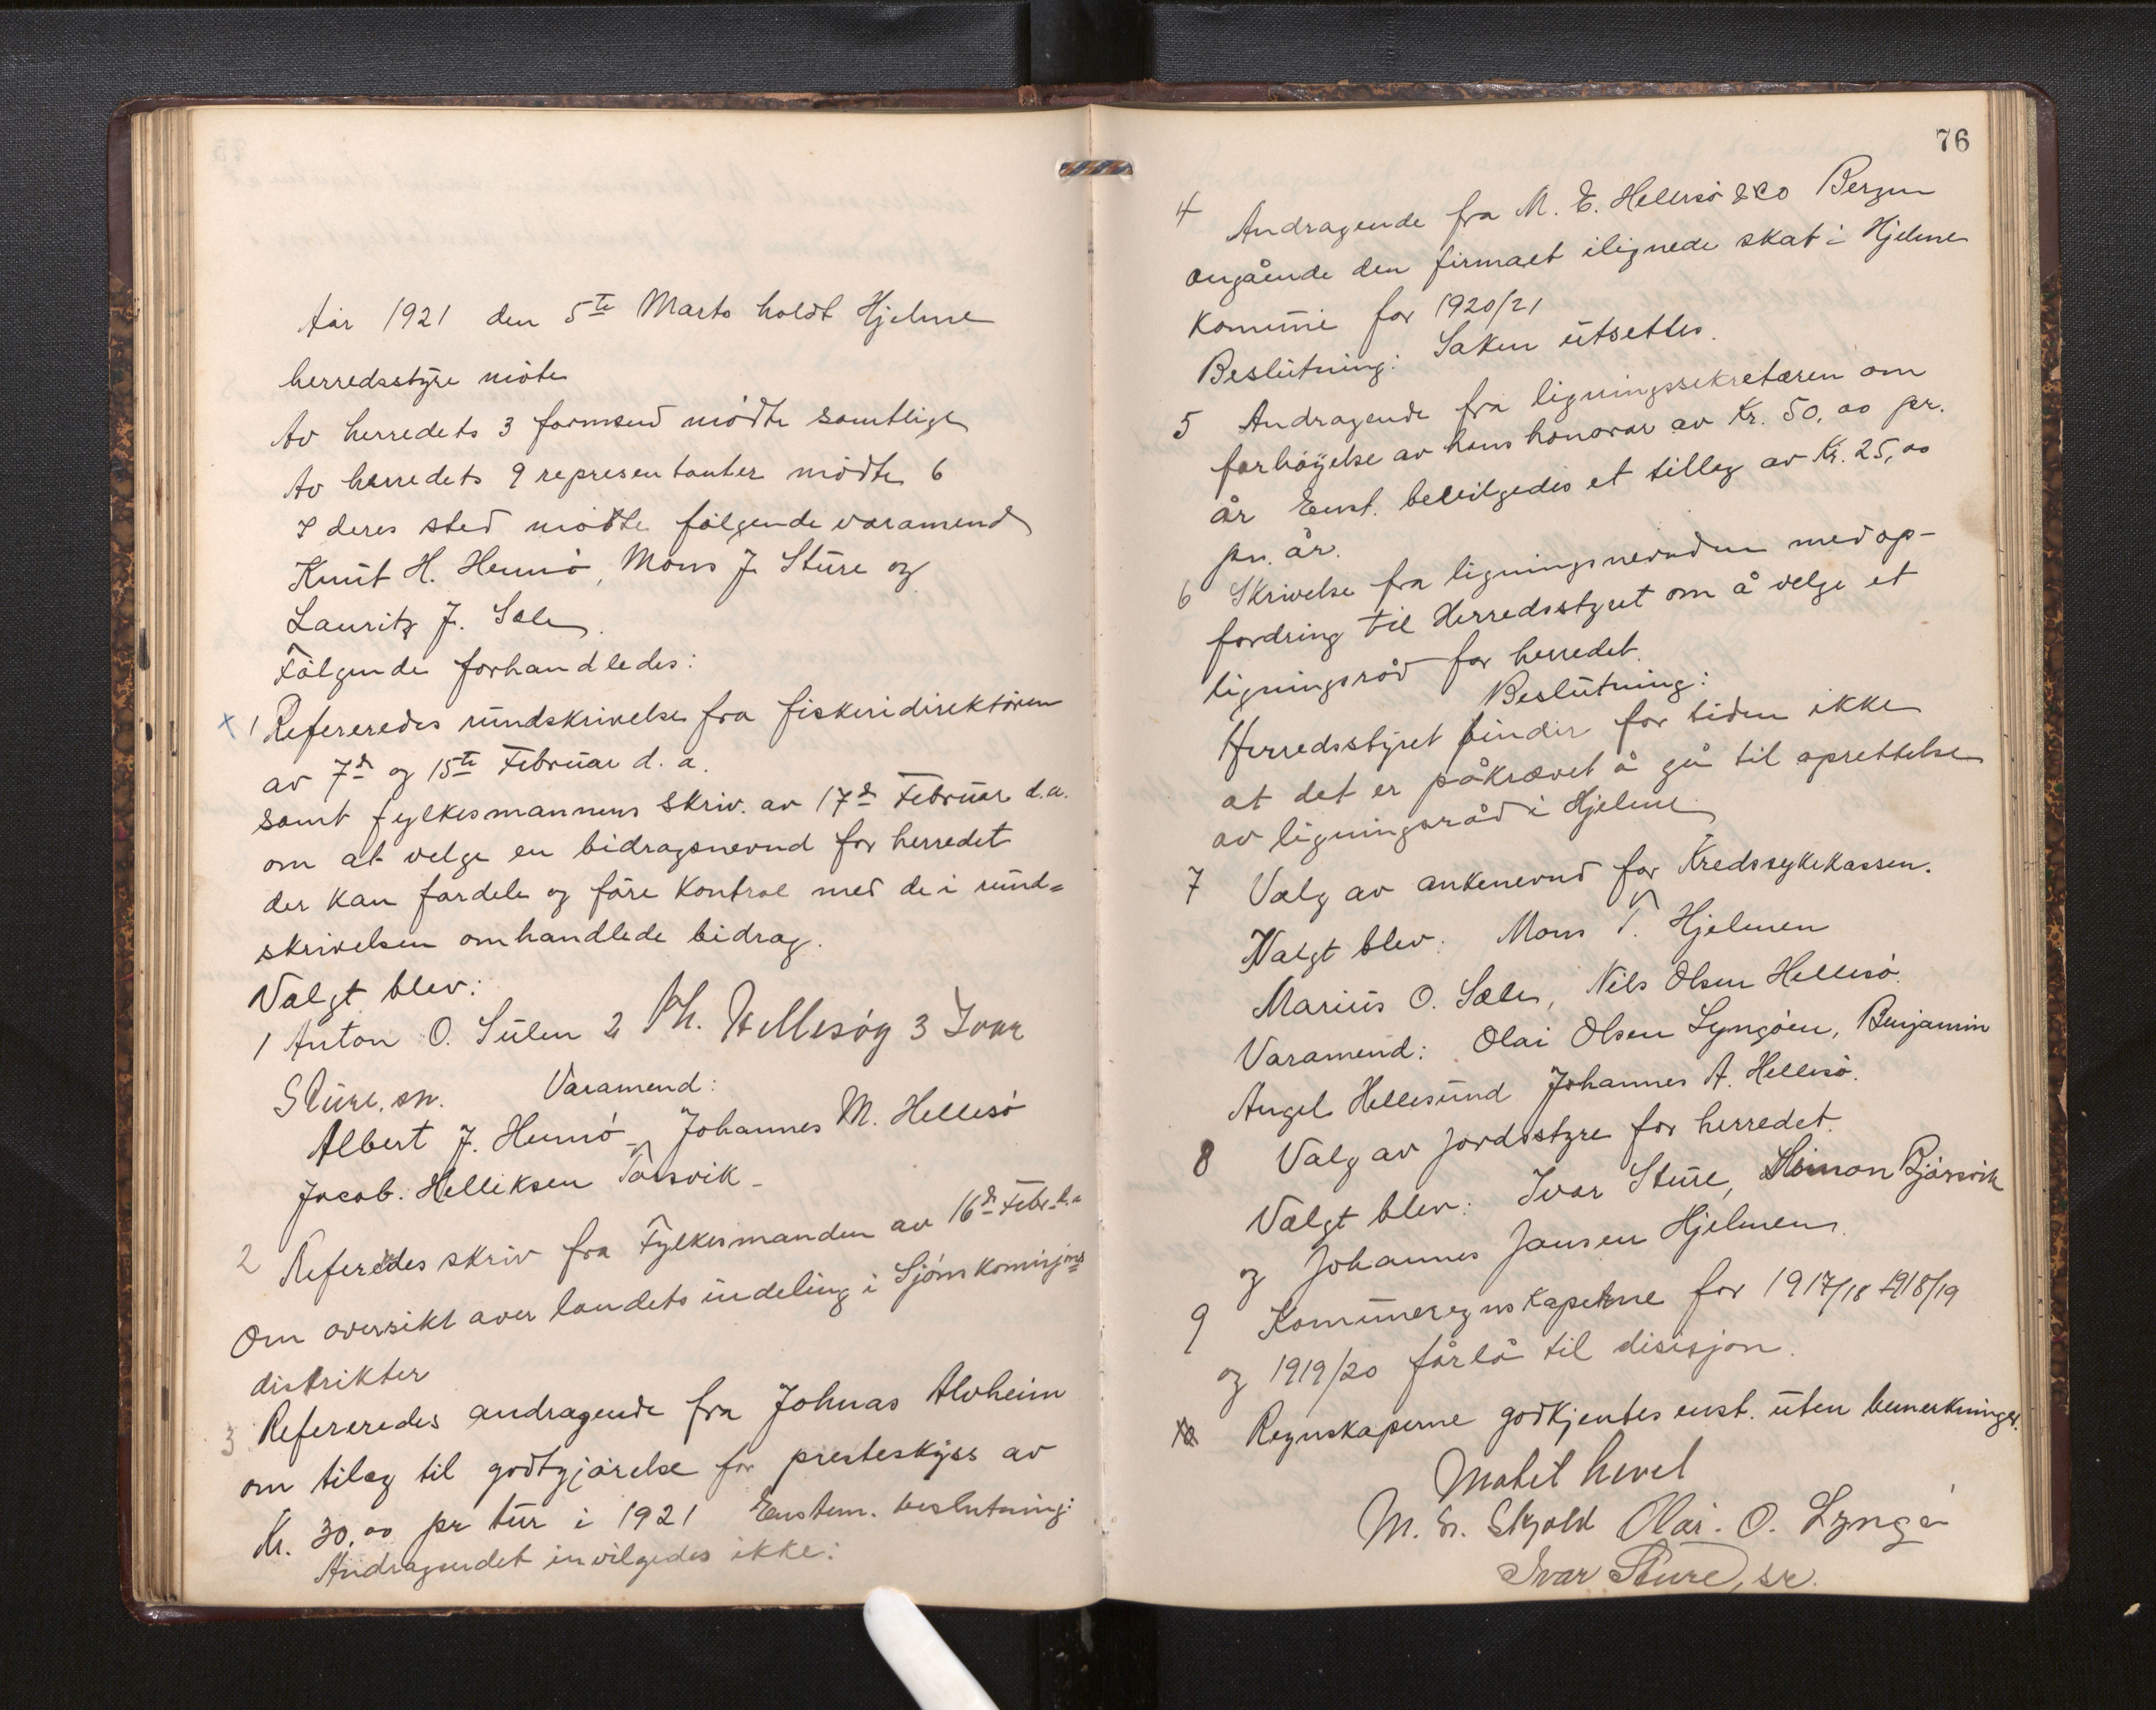 Aar 1921 den 5te Marts holdt Hjelme
herredsstyre möte
Av herredets 3 formend mödte samtlige
Av herredets 9 representanter mödte 6
I deres sted mödte följende varamend
Knut H. Hernö, Mons J. Sture og
Lauritz J. Sæle.
Fölgende forhandledes:
x 1 Refereredes rundskrivelse fra fiskeridirektören
av 7de og 15te Februar d. a.
samt fylkesmannens skriv. av 17de Februar d.a.
om at velge en bidragsnevnd for herredet
der kan fordele og före kontrol med de i rund=
skrivelsen omhandlede bidrag.
Valgt blev:
1 Anton O. Sulen 2 Ph. Hellesöy 3 Ivar
Sture. sn. Varamend:
Albert J. Hernö - Johannes M. Hellesö
Jacob. Helliksen Torsvik -
2 Refereredes skriv fra Fylkesmanden av 16de Febr. d.a
Om oversikt over landets indeling i Sjömkomisjons
distrikter
3 Refereredes andragende fra Johnas Alvheim
om tilæg til godtgjörelse for presteskyss av
Kr. 30,00 pr tur i 1921 Enstem. beslutning:
Andragendet invilgedes ikke:
76
4 Andragende fra M. E. Hellesö & Co Bergen
angående den firmaet ilignede skat i Hjelme
Komune for 1920/21
Beslutning: Saken utsettes.
5 Andragende fra ligningssekretæren om
forhöyelse av hans honorar av Kr. 50,00 pr.
år Enst. bevilgedes et tilleg av Kr. 25,00
pr. år.
6 Skrivelse fra ligningsnevnden med op-
fordring til Herredsstyret om å velge et
ligningsråd for herredet.
Beslutning:
Herredsstyret finder for tiden ikke
at det er påkrævet å gå til oprettelse
av ligningsråd i Hjelme
7 Valg av ankenevnd for Kredssykekassen.
Valgt blev: Mons T. Hjelmen
Marius O. Sæle, Nils Olsen Hellesö.
Varamend: Olai Olsen Lyngöen, Benjamin
Angel Hellesund Johannes A. Hellesö.
8 Valg av jordsstyre for herredet.
Valgt blev: Ivar Sture, Simon Björsvik
og Johannes Jansen Hjelmen.
9 Komuneregnskaperne for 1917/18 1918/19
og 1919/20 förlå til disisjon.
Regnskaperne godkjentes enst. uten bemerkninger.
Mötet hevet
M. N. Skjold Olai. O. Lyngö
Ivar Sture, sr.